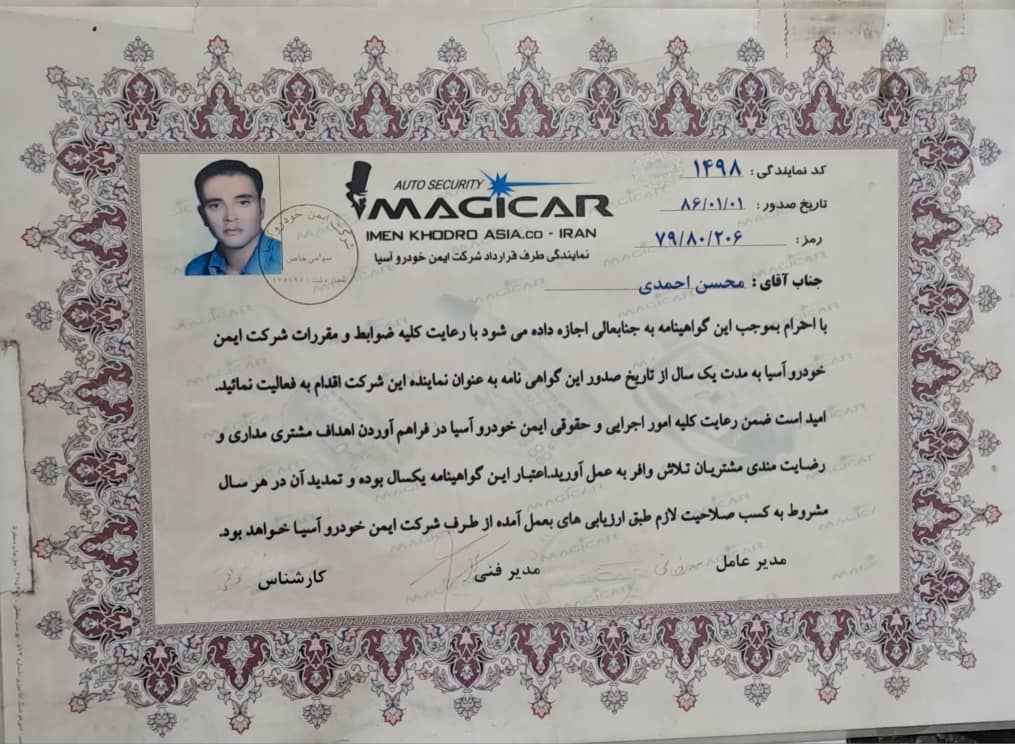 کد نمایندگی: ۱۴۹۸
AUTO SECURITY
MAGICAR
تاریخ صدور: ۸۶/۰۱/۰۱
IMEN KHODRO ASIA.CO - IRAN
رمز: ۷۹/۸۰/۲۰۶
نمایندگی طرف قرارداد شرکت ایمن خودرو آسیا
شرکت ایمن خودرو
سهامی خاص
جناب آقای: محسن احمدی
با احترام بموجب این گواهینامه به جنابعالی اجازه داده می شود با رعایت کلیه ضوابط و مقررات شرکت ایمن
خودرو آسیا به مدت یک سال از تاریخ صدور این گواهی نامه به عنوان نماینده این شرکت اقدام به فعالیت نمائید.
امید است ضمن رعایت کلیه امور اجرایی و حقوقی ایمن خودرو آسیا در فراهم آوردن اهداف مشتری مداری و
رضایت مندی مشتریان تلاش وافر به عمل آورید.اعتبار ایـن گواهینامه یکسال بوده و تمدید آن در هر سال
مشروط به کسب صلاحیت لازم طبق ارزیابی های بعمل آمده از طـرف شرکت ایمن خودرو آسیـا خـواهد بود.
مدیر عامل
مدیر فنی
کارشناس